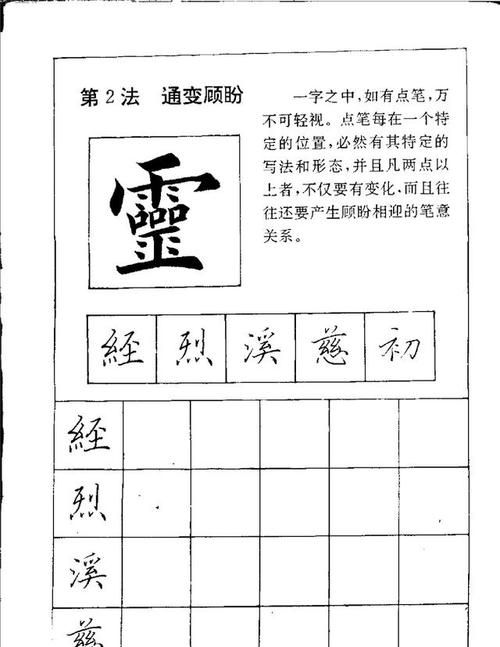 第2法 通变顾盼
一字之中,如有点笔,万
不可轻视。点笔每在一个特
定的位置,必然有其特定的
写法和形态,并且凡两点以
上者,不仅要有变化,而且往
往还要产生顾盼相迎的笔意
关系。
靈
經 烈 溪 慈 初
經
烈
溪
慈